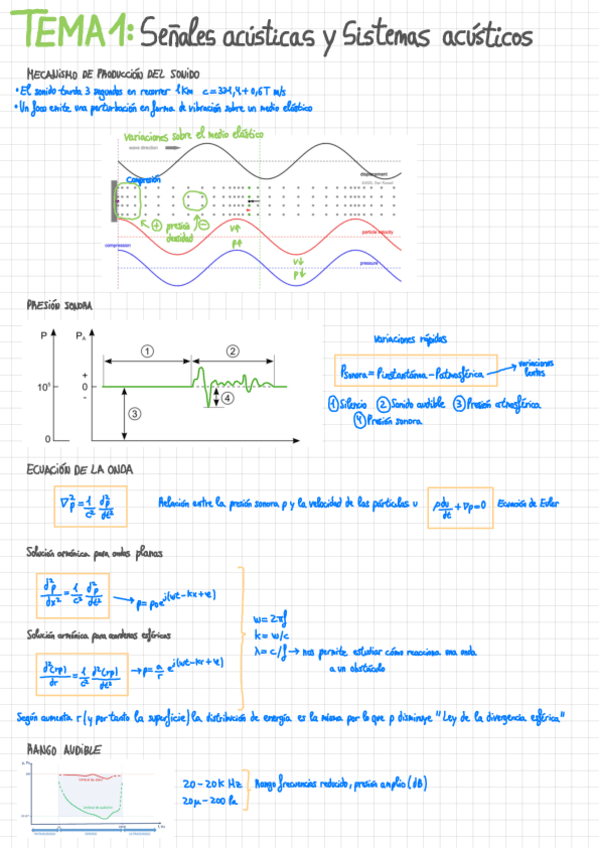 TEMA 1: Señales acústicas y Sistemas acústicos
MECANISMO DE PRODUCCIÓN DEL SONIDO
• El sonido tarda 3 segundos en recorrer 1 Km c = 331,4 + 0,6T m/s
• Un foco emite una perturbación en forma de vibración sobre un medio elástico
Variaciones sobre el medio elástico
wave direction
displacement
Compresión
+ presión -
densidad
v↑
p↑
particle velocity
compression
v↓
p↓
pressure
PRESIÓN SONORA
P
PA
1
2
+
10⁵
0
-
3
4
0
variaciones rápidas
Psonora = Pinstantánea - Patmosférica → variaciones lentas
① Silencio ② Sonido audible ③ Presión atmosférica
④ Presión sonora
ECUACIÓN DE LA ONDA
∇²p = 1/c² d²p/dt²
Relación entre la presión sonora p y la velocidad de las partículas u
ρ du/dt + ∇p = 0 Ecuación de Euler
Solución armónica para ondas planas
d²p/dx² = 1/c² d²p/dt² → p = p₀ e^j(wt-kx+φ)
Solución armónica para ondas esféricas
d²(rp)/dr = 1/c² d²(rp)/dt² → p = a/r e^j(wt-kr+φ)
w = 2πf
k = w/c
λ = c/f → nos permite estudiar cómo reacciona una onda
a un obstáculo
Según aumenta r (y por tanto la superficie) la distribución de energía es la misma por lo que p disminuye "Ley de la divergencia esférica"
RANGO AUDIBLE
20 - 20K Hz
20μ - 200 Pa
Rango frecuencias reducido, presión amplio (dB)